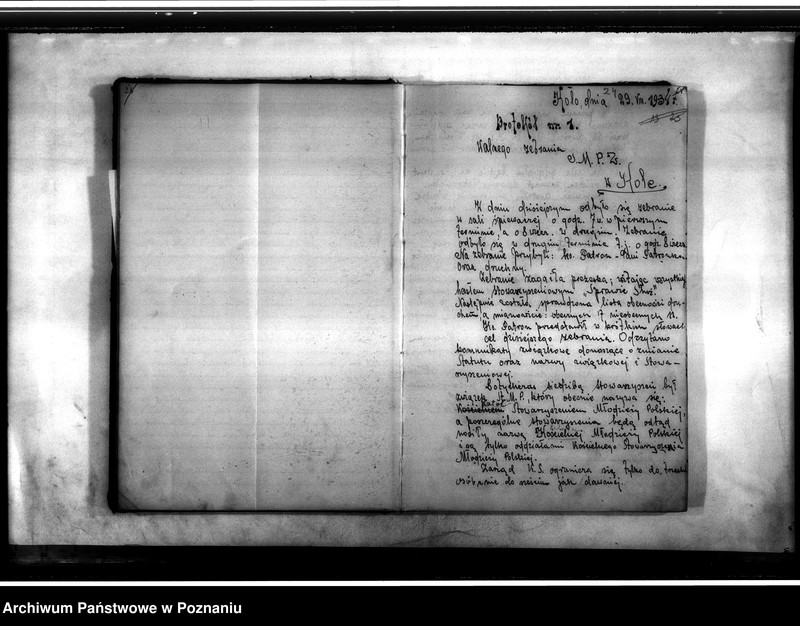 Koło, dnia 29. VII. 1934 r.
Protokół nr. 1.
Walnego zebrania
S. M. P. Ż.
w Kole.
W dniu dzisiejszym odbyło się zebranie
w sali śpiewaczej o godz. 7 w. w pierwszym
terminie, a o 8 wiecz. w drugim. Zebranie
odbyło się w drugim terminie t. j. o godz. 8 wiecz.
Na zebranie przybyli: ks. Patron - Pani Patronka
oraz druchny.
Zebranie zagaiła prezeska, witając wszystkich
hasłem stowarzyszeniowym „Sprawie Służ".
Następnie została sprawdzona lista obecności dru-
chen, a mianowicie: obecnych 17 nieobecnych 11.
Ks. Patron przedstawił w krótkim słowach
cel dzisiejszego zebrania. Odczytano
komunikaty związkowe donoszące o zmianie
Statutu oraz nazwy związkowej i Stowa-
rzyszeniowej.
Dotychczas siedzibą stowarzyszeń był
związek S. M. P., który obecnie nazywa się:
Katol. Stowarzyszeniem Młodzieży Polskiej,
a poszczególne stowarzyszenia będą odtąd
nosiły nazwę Kościelnej Młodzieży Polskiej
i są tylko oddziałami Kościelnego Stowarzyszenia
Młodzieży Polskiej.
Zarząd K. S. ogranicza się tylko do trzech
osób, a nie do sześciu jak dawniej.
Archiwum Państwowe w Poznaniu